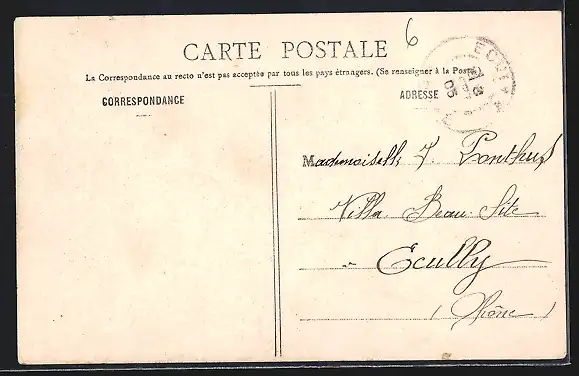 6
CARTE POSTALE
La Correspondance au recto n'est pas acceptée par tous les pays étrangers. (Se renseigner à la Poste)
CORRESPONDANCE
ADRESSE
ECULLY
05
Mademoiselle J. Ponthus
Villa Beau-Site
Ecully
(Rhône)